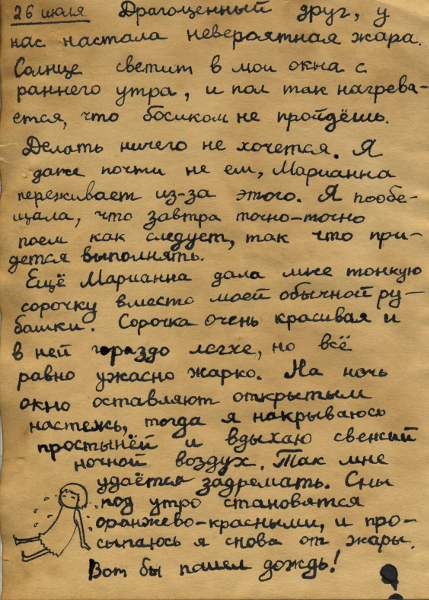 26 июля Драгоценный друг, у
нас настала невероятная жара.
Солнце светит в мои окна с
раннего утра, и пол так нагрева-
ется, что босиком не пройдёшь.
Делать ничего не хочется. Я
даже почти не ем, Марианна
переживает из-за этого. Я пообе-
щала, что завтра точно-точно
поем как следует, так что при-
дется выполнять.
Ещё Марианна дала мне тонкую
сорочку вместо моей обычной ру-
башки. Сорочка очень красивая и
в ней гораздо легче, но всё
равно ужасно жарко. На ночь
окно оставляют открытым
настежь, тогда я накрываюсь
простынёй и вдыхаю свежий
ночной воздух. Так мне
удаётся задремать. Сны
под утро становятся
оранжево-красными, и про-
сыпаюсь я снова от жары.
Вот бы пошел дождь!